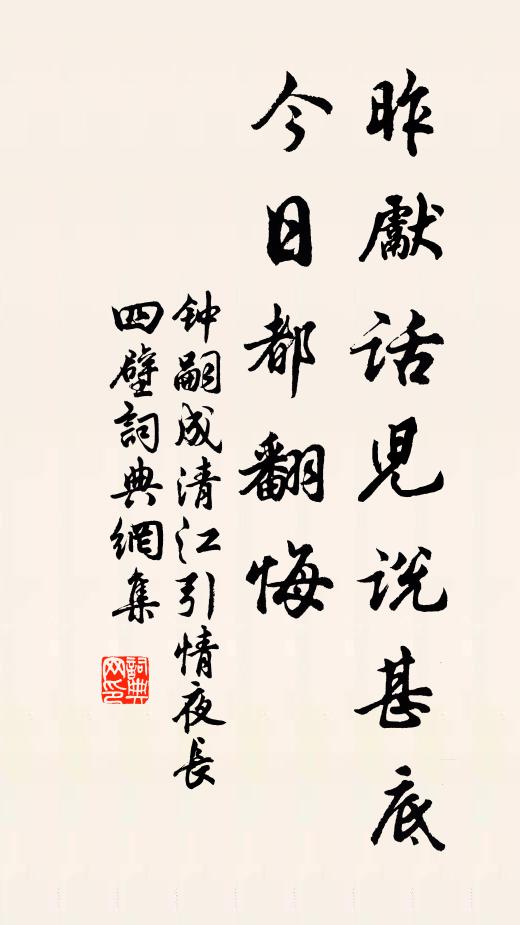 昨獻話兒說甚底
今日都翻悔
钟嗣成清江引情夜長
四壁詞典網集
詞典網印